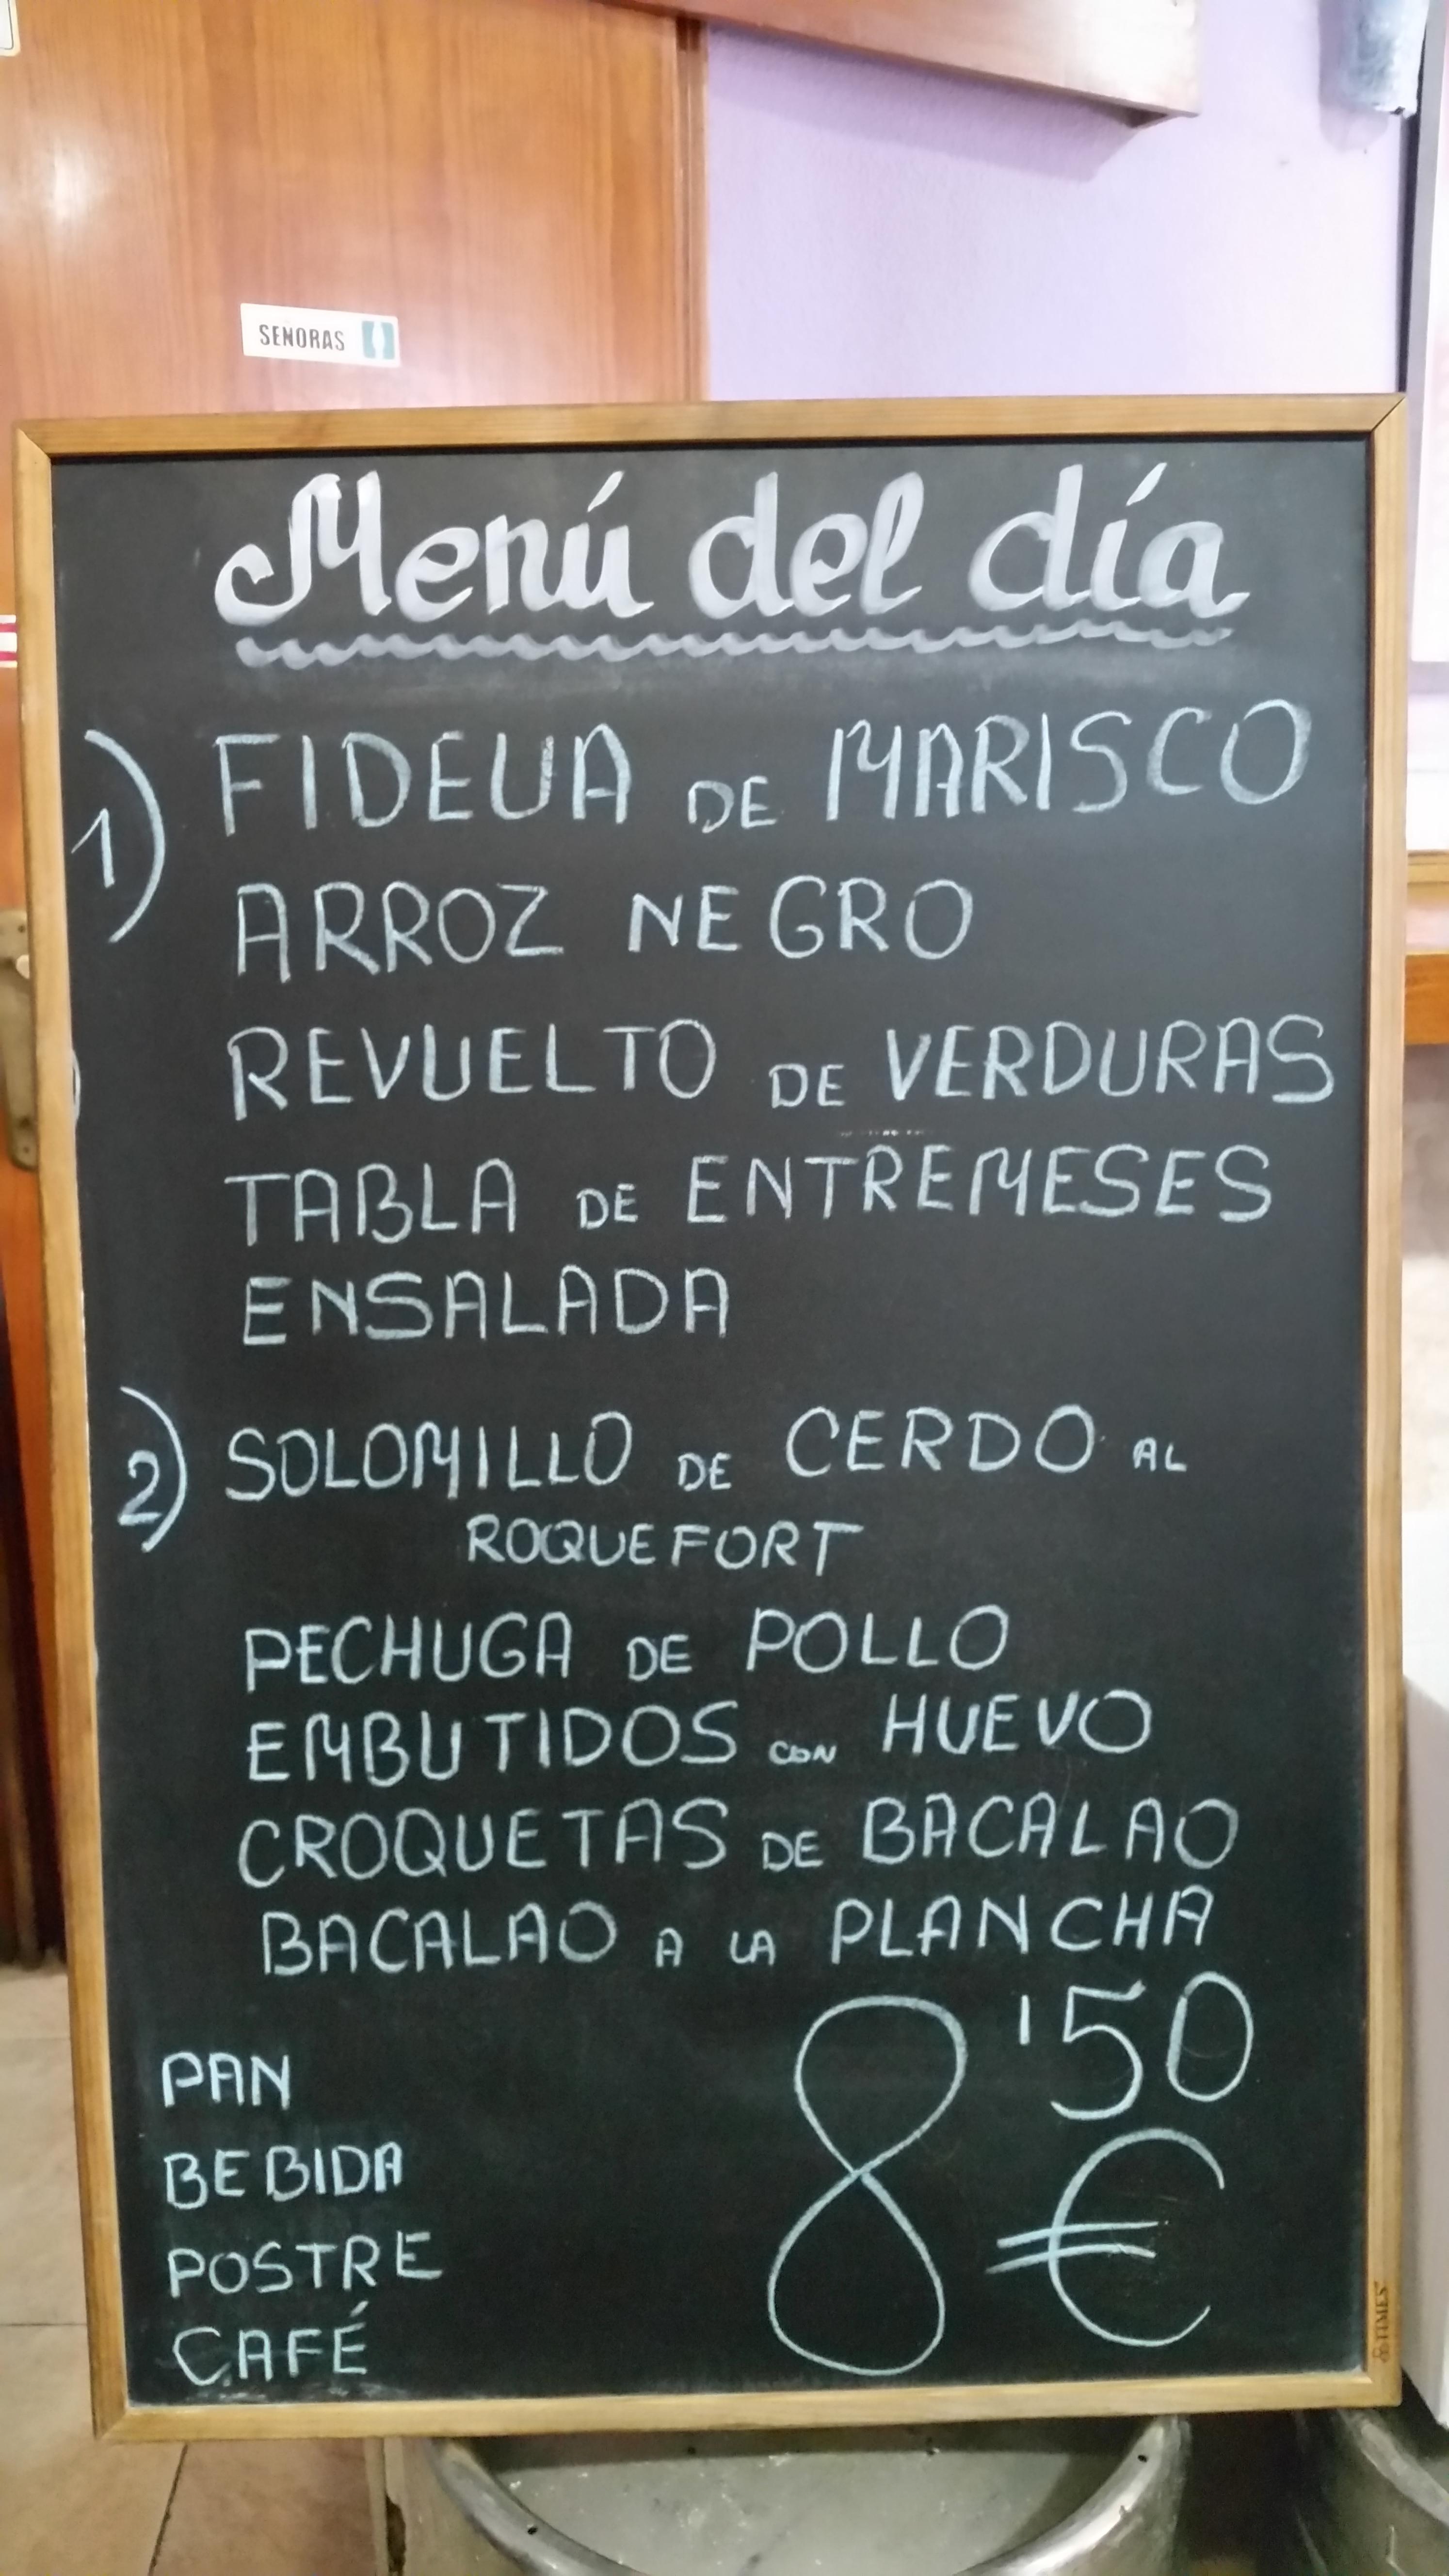 SEÑORAS
Menú del día
1) FIDEUA DE MARISCO
ARROZ NEGRO
REVUELTO DE VERDURAS
TABLA DE ENTREMESES
ENSALADA
2) SOLOMILLO DE CERDO AL
ROQUEFORT
PECHUGA DE POLLO
EMBUTIDOS CON HUEVO
CROQUETAS DE BACALAO
BACALAO A LA PLANCHA
8'50 €
PAN
BEBIDA
POSTRE
CAFÉ
TIMES